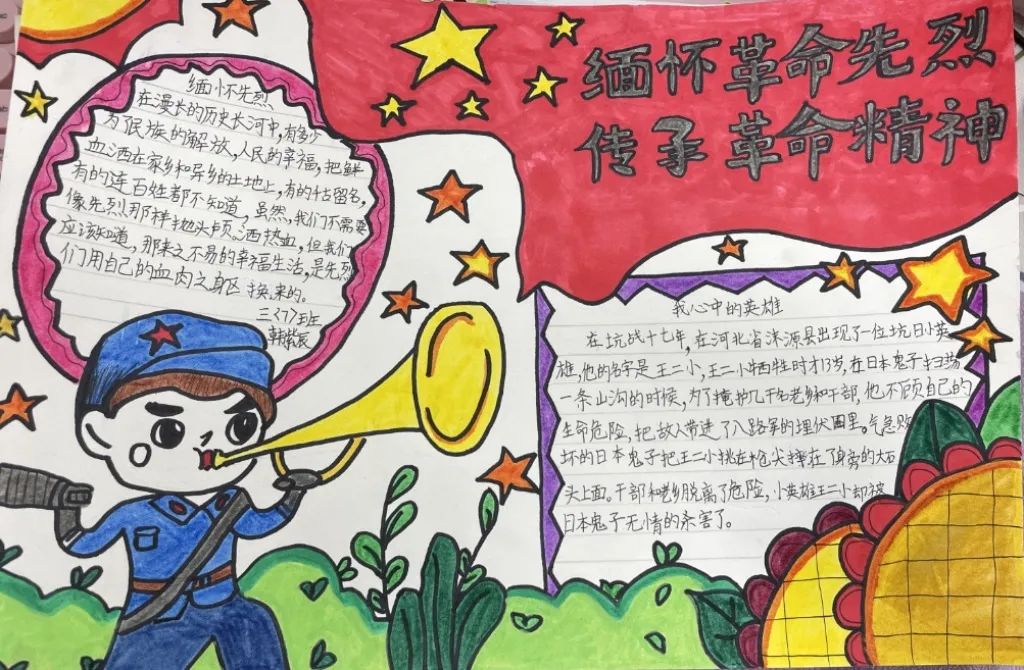 缅怀革命先烈
传承革命精神
缅怀先烈
在漫长的历史长河中,有多少
为民族的解放,人民的幸福,把鲜
血洒在家乡和异乡的土地上,有的千古留名,
有的连百姓都不知道,虽然,我们不需要
像先烈那样抛头颅洒热血,但我们
应该知道,那来之不易的幸福生活,是先烈
们用自己的血肉之身区换来的。
三<27>班
韩紫辰
我心中的英雄
在坑战十七年,在河北省涞源县出现了一位坑日小英
雄,他的名字是王二小,王二小牺牲时才13岁,在日本鬼子扫荡
一条山沟的时候,为了掩护几千名老乡和干部,他不顾自己的
生命危险,把敌人带进了八路军的埋伏圈里。气急败
坏的日本鬼子把王二小挑在枪尖摔在了身旁的大石
头上面。干部和老乡脱离了危险,小英雄王二小却被
日本鬼子无情的杀害了。